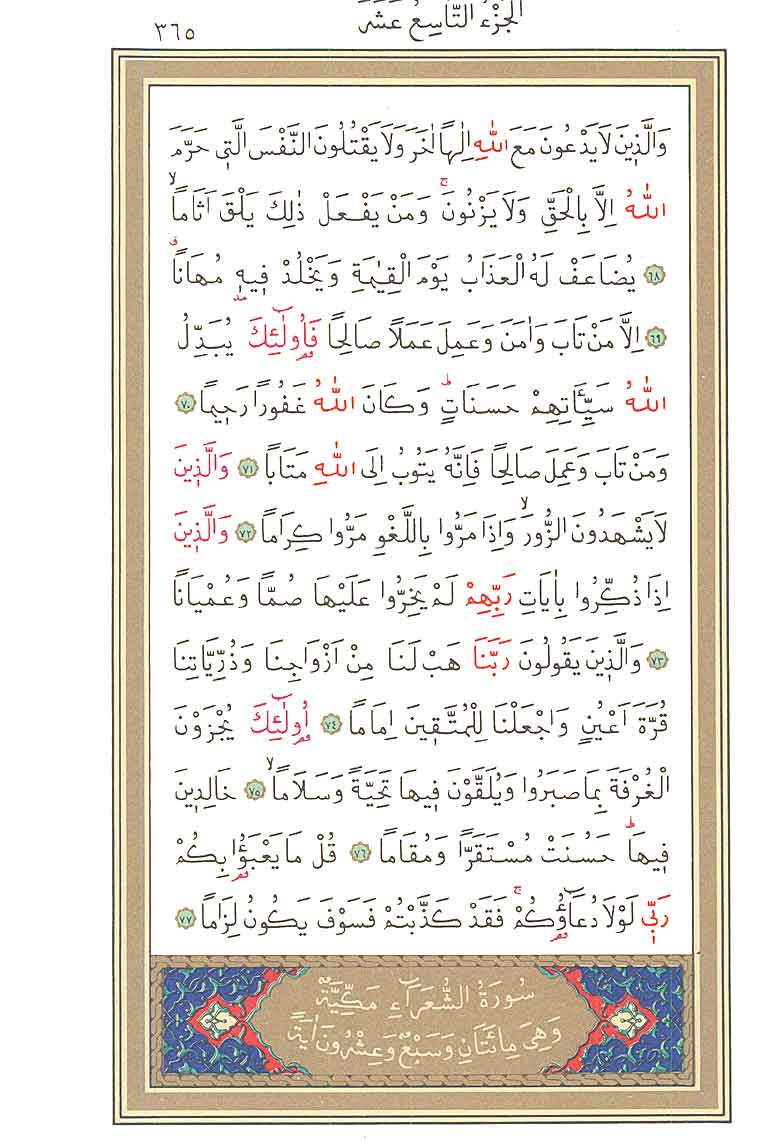 الجزء التاسع عشر
٣٦٥
وَالَّذ۪ينَ لَا يَدْعُونَ مَعَ اللّٰهِ اِلٰهًا اٰخَرَ وَلَا يَقْتُلُونَ النَّفْسَ الَّت۪ي حَرَّمَ
اللّٰهُ اِلَّا بِالْحَقِّ وَلَا يَزْنُونَۚ وَمَنْ يَفْعَلْ ذٰلِكَ يَلْقَ اَثَامًاۙ
﴿٦٨﴾ يُضَاعَفْ لَهُ الْعَذَابُ يَوْمَ الْقِيٰمَةِ وَيَخْلُدْ ف۪يه۪ مُهَانًاۗ
﴿٦٩﴾ اِلَّا مَنْ تَابَ وَاٰمَنَ وَعَمِلَ عَمَلًا صَالِحًا فَاُو۬لٰٓئِكَ يُبَدِّلُ
اللّٰهُ سَيِّـَٔاتِهِمْ حَسَنَاتٍۜ وَكَانَ اللّٰهُ غَفُورًا رَح۪يمًا ﴿٧٠﴾
وَمَنْ تَابَ وَعَمِلَ صَالِحًا فَاِنَّهُ يَتُوبُ اِلَى اللّٰهِ مَتَابًا ﴿٧١﴾ وَالَّذ۪ينَ
لَا يَشْهَدُونَ الزُّورَۙ وَاِذَا مَرُّوا بِاللَّغْوِ مَرُّوا كِرَامًا ﴿٧٢﴾ وَالَّذ۪ينَ
اِذَا ذُكِّرُوا بِاٰيَاتِ رَبِّهِمْ لَمْ يَخِرُّوا عَلَيْهَا صُمًّا وَعُمْيَانًا
﴿٧٣﴾ وَالَّذ۪ينَ يَقُولُونَ رَبَّنَا هَبْ لَنَا مِنْ اَزْوَاجِنَا وَذُرِّيَّاتِنَا
قُرَّةَ اَعْيُنٍ وَاجْعَلْنَا لِلْمُتَّق۪ينَ اِمَامًا ﴿٧٤﴾ اُو۬لٰٓئِكَ يُجْزَوْنَ
الْغُرْفَةَ بِمَا صَبَرُوا وَيُلَقَّوْنَ ف۪يهَا تَحِيَّةً وَسَلَامًاۙ ﴿٧٥﴾ خَالِد۪ينَ
ف۪يهَاۜ حَسُنَتْ مُسْتَقَرًّا وَمُقَامًا ﴿٧٦﴾ قُلْ مَا يَعْبَؤُ۬ا بِكُمْ
رَبّ۪ي لَوْلَا دُعَٓاؤُ۬كُمْۚ فَقَدْ كَذَّبْتُمْ فَسَوْفَ يَكُونُ لِزَامًا ﴿٧٧﴾
سُورَةُ الشُّعَرَٓاءِ مَكِّيَّةٌ
وَهِيَ مِائَتَانِ وَسَبْعٌ وَعِشْرُونَ اٰيَةً